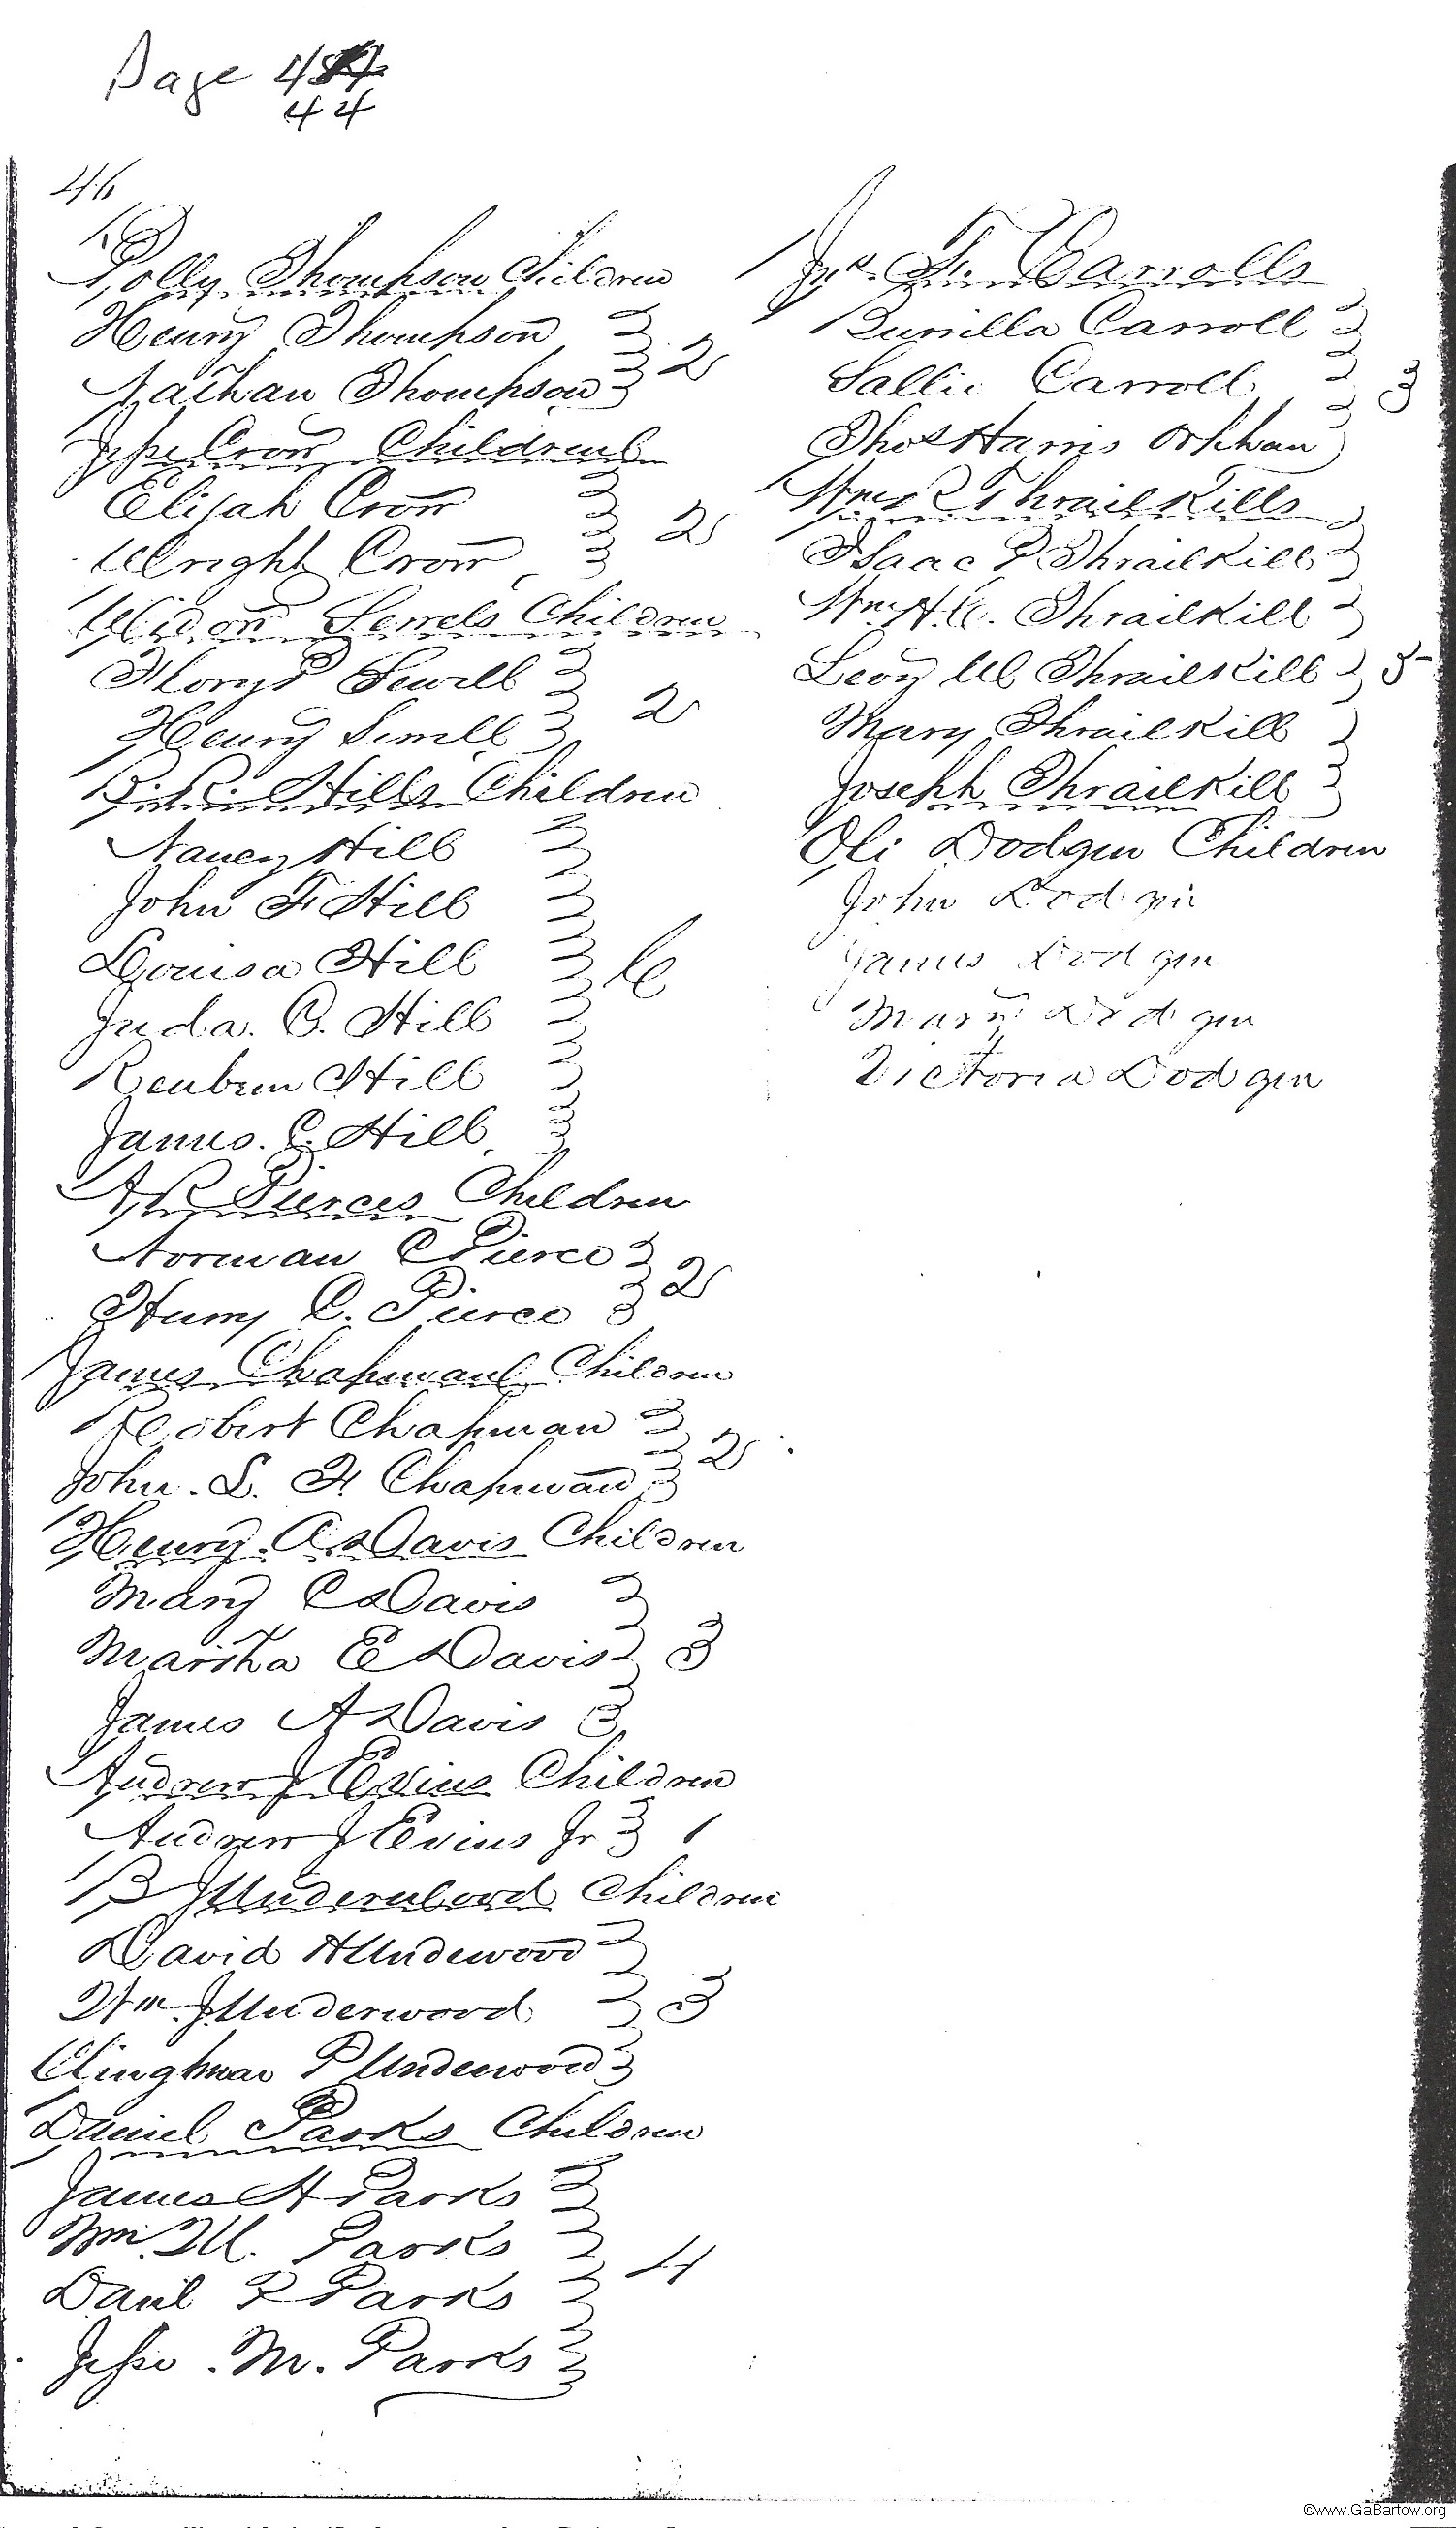 Page 44
46
Polly Thompson Children
Henry Thompson
Nathan Thompson 2
Jesse Crow Children
Elijah Crow
Wright Crow 2
Widow Sewels Children
Sewell
Henry Sewell 2
Hills Children
Nancy Hill
John F Hill
Louisa Hill 6
Juda. C. Hill
Reuben Hill
James. C. Hill
A R Pierces Children
Norman C Pierce
Henry C. Pierce 2
James Chapmans Children
Robert Chapman
John. L. F. Chapman 2
Henry. A Davis Children
Mary C Davis
Martha E Davis 3
James A Davis
Andrew J Evins Children
Andrew J Evins Jr 1
B J Underwood Children
David H Undewood
Wm. J Underwood 3
P Underwood
Daniel Parks Children
James H Parks
Wm. M. Parks
Danil P Parks 4
Jesse. M. Parks
Jno. F. Carrolls
Carroll
Sallie Carroll 3
Thos Harris Orphan
Wm R ThrailKills
Isaac P ThrailKill
Wm. H. C. ThrailKill
Levy W ThrailKill 5
Mary ThrailKill
Joseph ThrailKill
Oli Dodgen Children
John Dodgen
James Dodgen
Mary Dodgen
Victoria Dodgen
©www.GaBartow.org